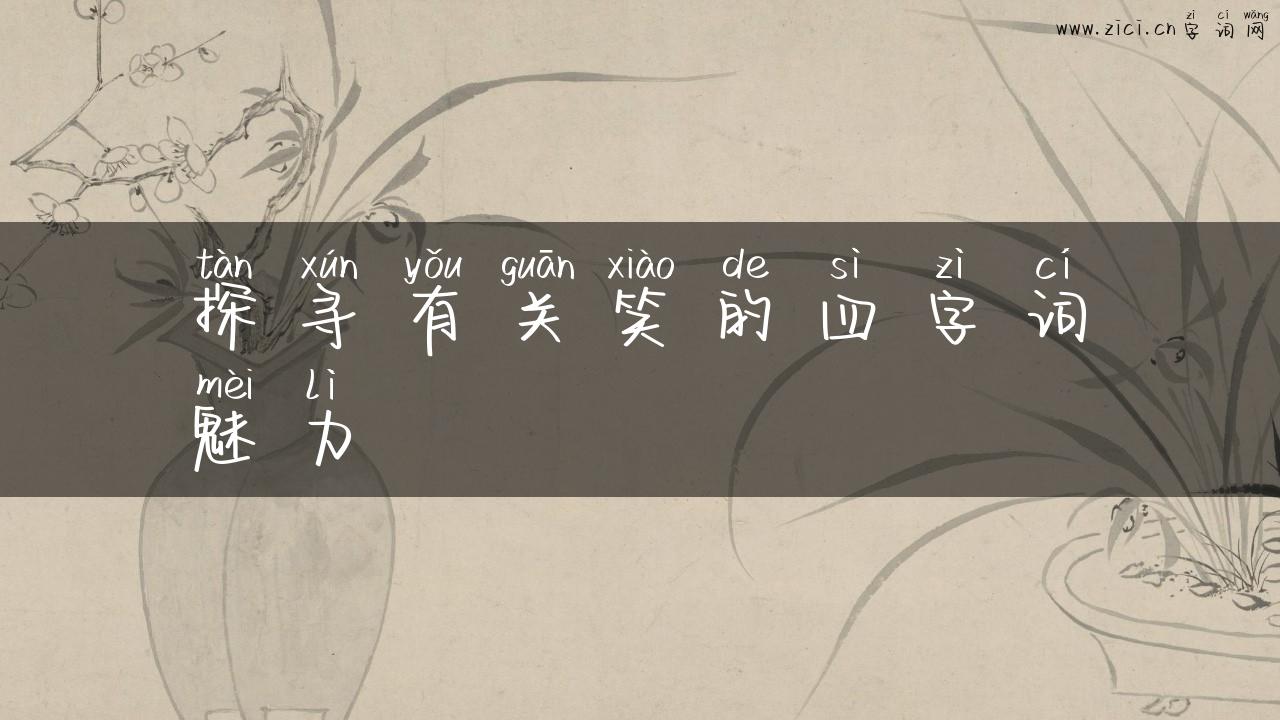 zì cí wǎng
www.zici.cn 字词网
tàn xún yǒu guān xiào de sì zì cí
探寻有关笑的四字词
mèi lì
魅力